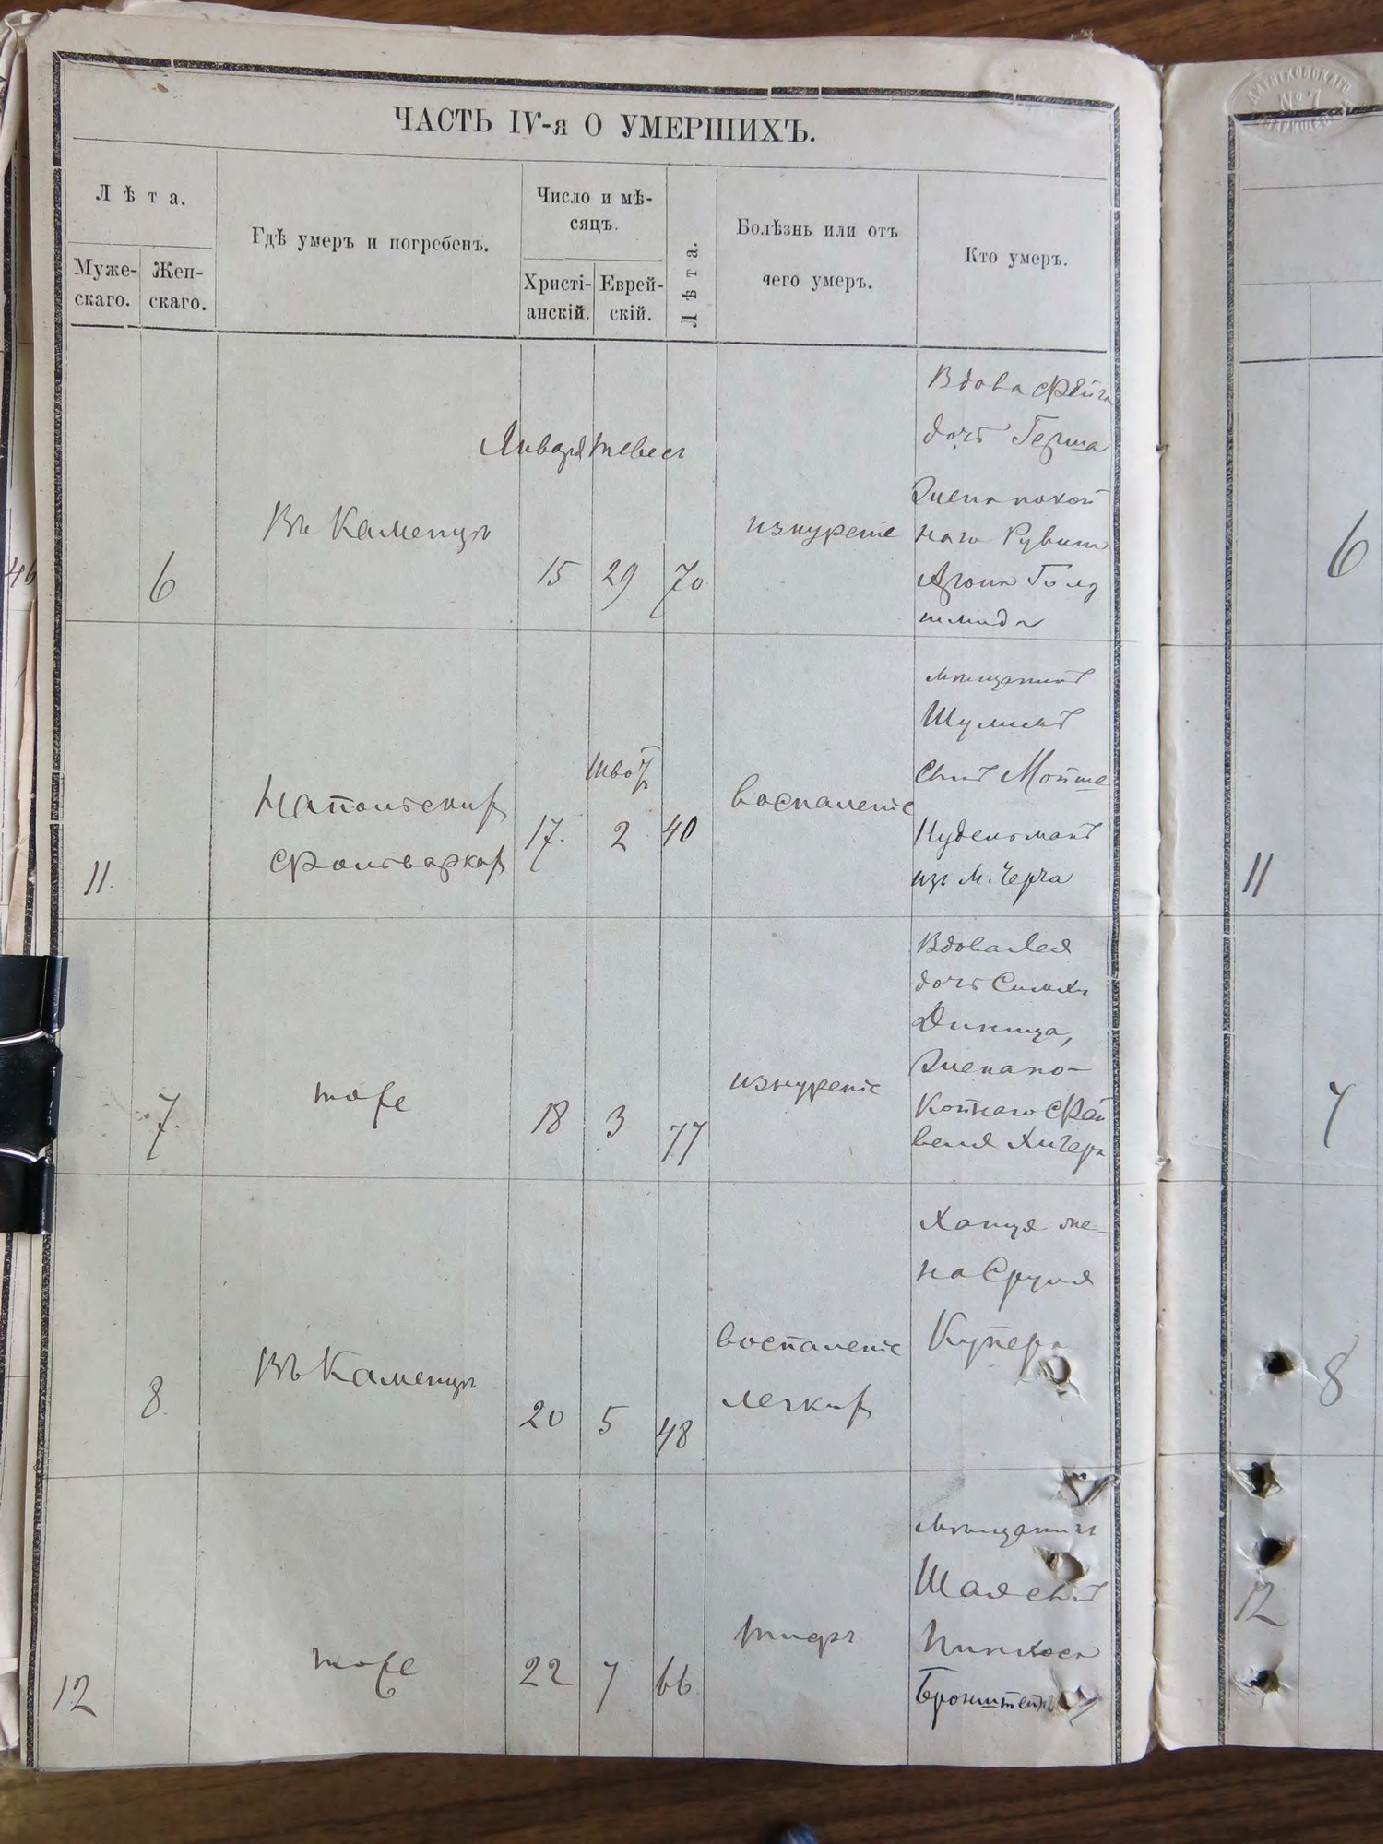 ЧАСТЬ IV-я О УМЕРШИХЪ.
Лѣта.
Муже-
скаго.
Жен-
скаго.
Гдѣ умеръ и погребенъ.
Число и мѣ-
сяцъ.
Христі-
анскій.
Еврей-
скій.
Лѣта.
Болѣзнь или отъ
чего умеръ.
Кто умеръ.
Января Тевесъ
6
Въ Каменцѣ
15
29
70
изнуреніе
Вдова Фейга
дочь Герша
жена покой
наго Рувина
Арона Голд
шмида
11.
фольваркѣ
17.
2
40
воспаленіе
мѣщанинъ
Шулимъ
сынъ Мойше
Нудельманъ
изъ м. Черча
7.
тоже
18
3
77
изнуреніе
Вдова Лея
дочь Симхи
жена по-
койнаго Фай
веля
8.
Въ Каменцѣ
20
5
48
воспаленіе
легкихъ
Хапця же-
на Сруля
Купера
12
тоже
22
7
66
тифъ
мѣщанинъ
Шая сынъ
Пинхоса
Бронштейнъ
46
№ 7
6
11
7
8
12